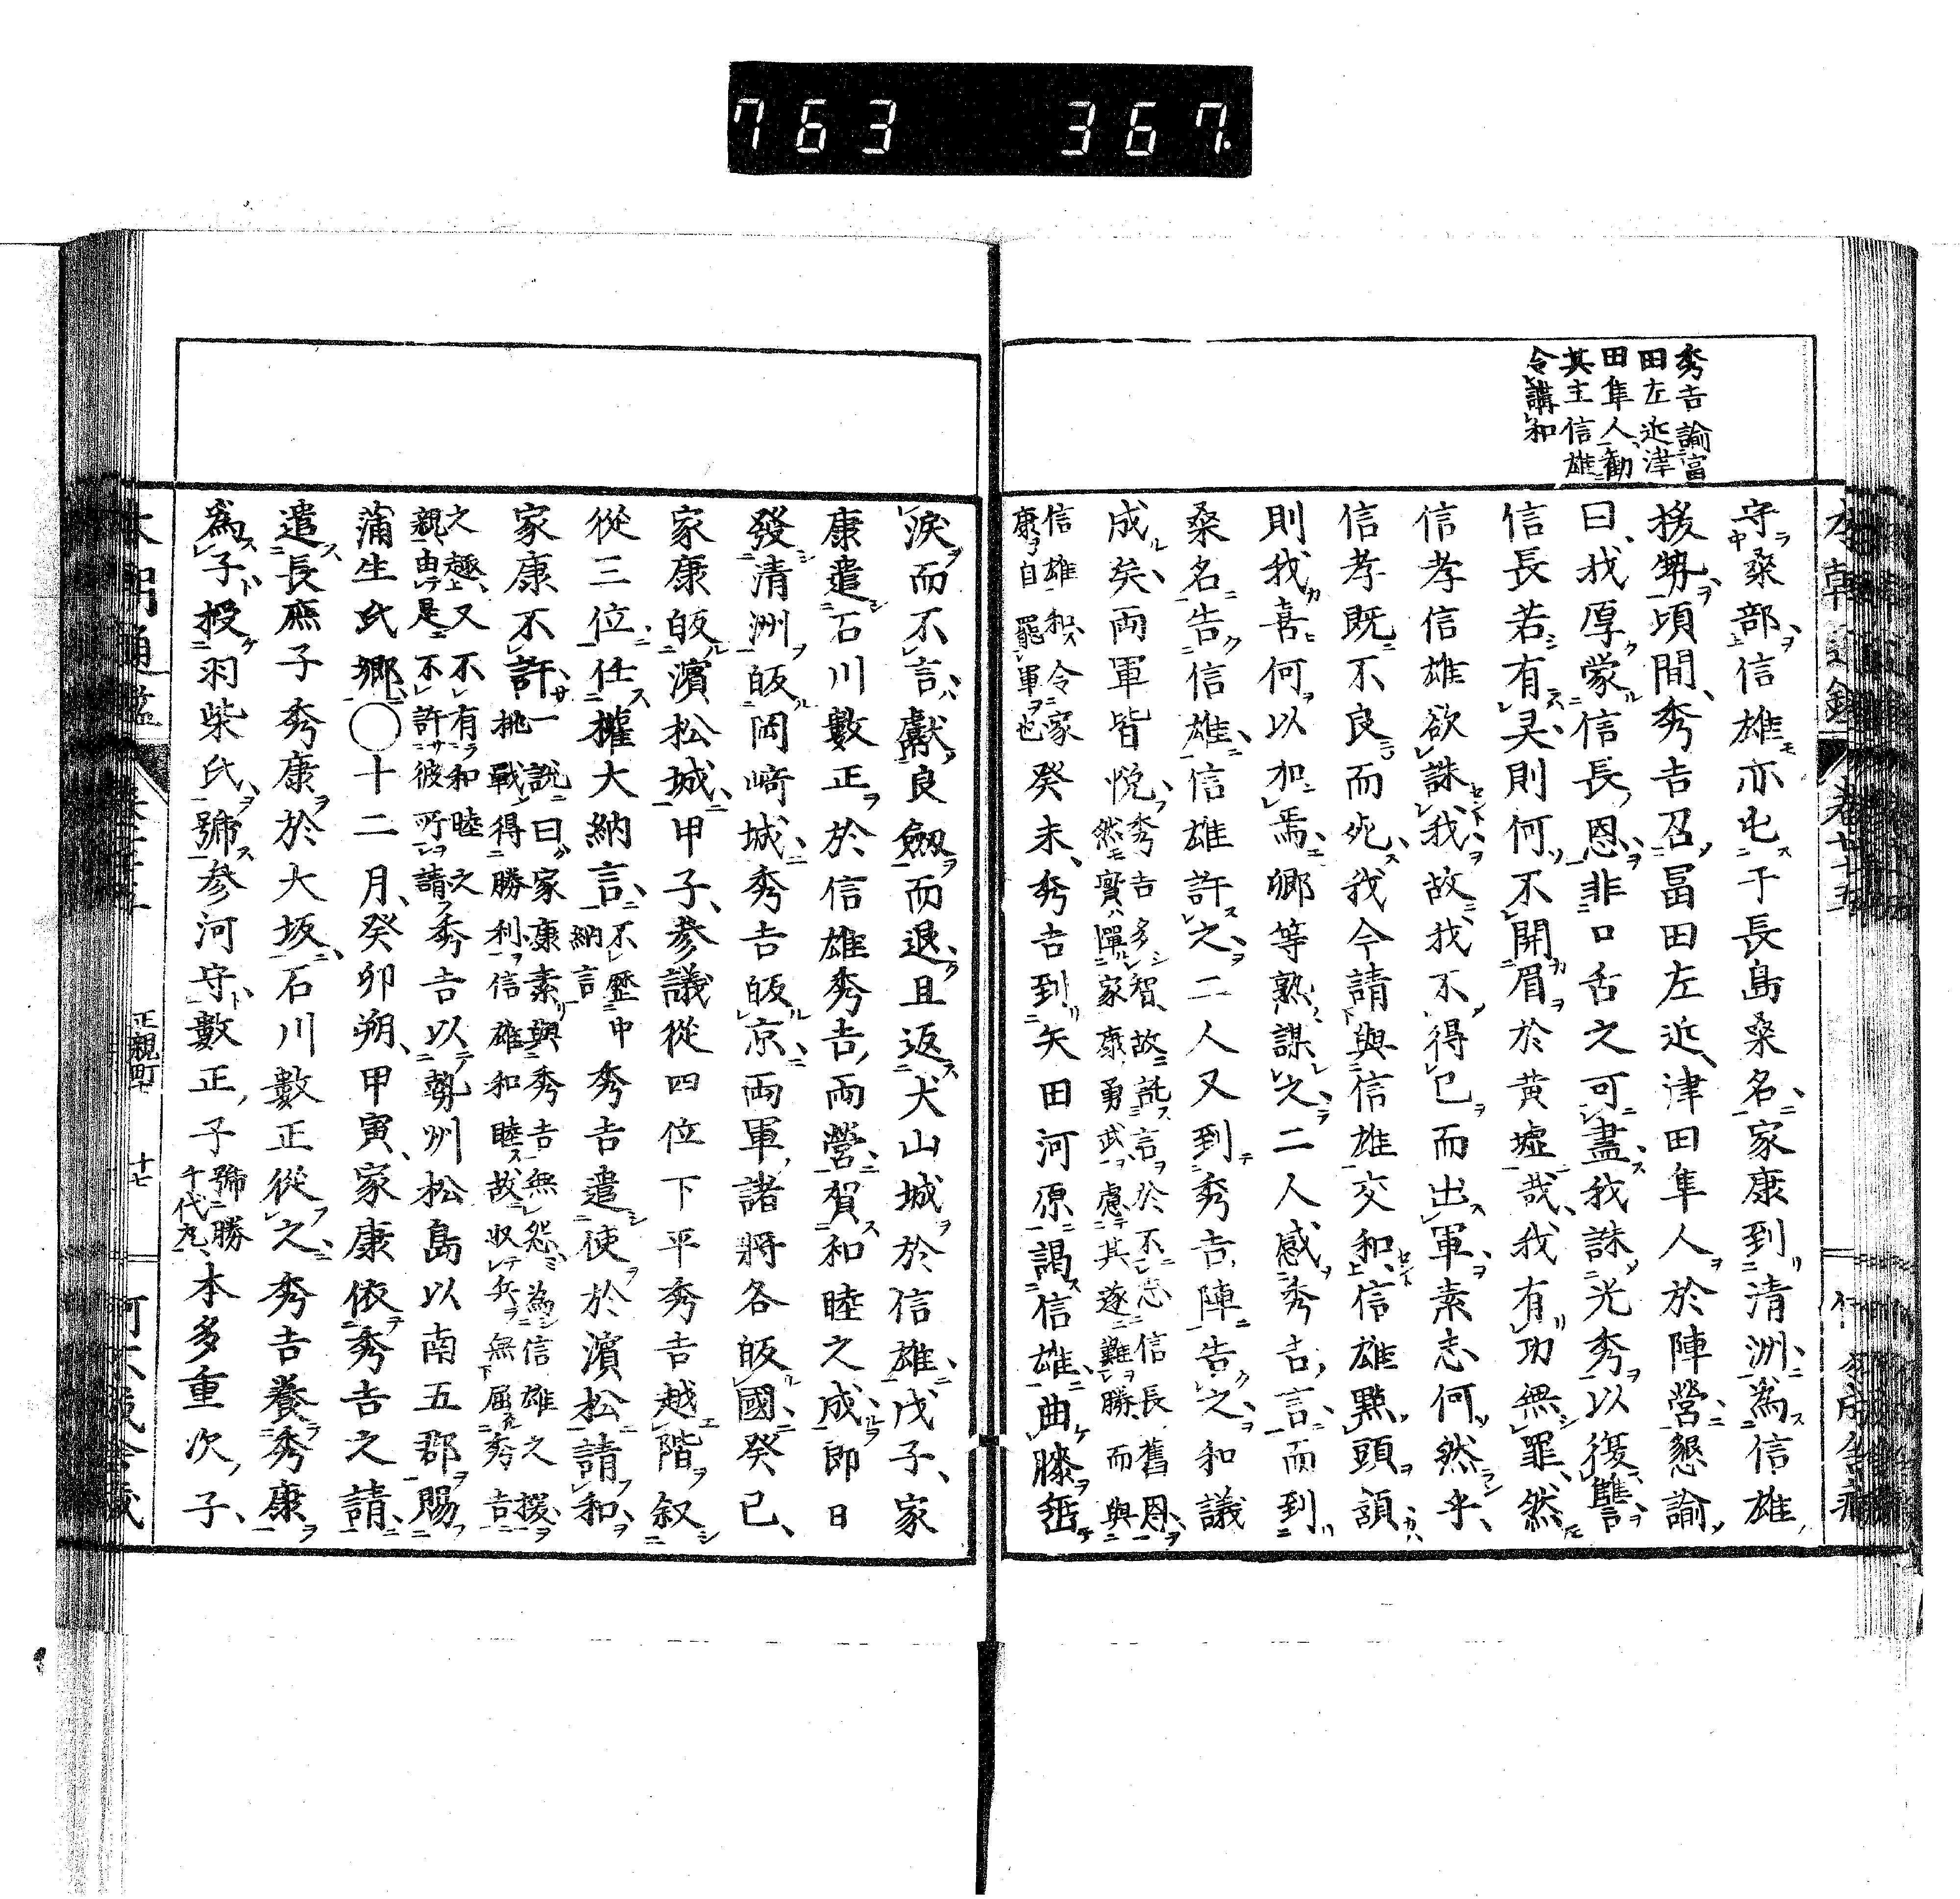 763 367
秀吉諭冨
田左近津
田隼人勸
其主信雄
令講和
守桑部信雄亦屯于長島桑名家康到清洲為信雄
援勢頃間秀吉召冨田左近津田隼人於陣營懇諭
曰我厚蒙信長恩非口舌之可盡我誅光秀以復讎
信長若有灵則何不開眉於黄墟哉我有功無罪然
信孝信雄欲誅我故我不得已而出軍素志何然乎
信孝既不良而死我今請與信雄交和信雄點頭頷
則我喜何以加焉卿等熟謀之二人感秀吉言而到
桑名告信雄信雄許之二人又到秀吉陣告之和議
成矣兩軍皆悦
秀吉多智故託言於不忘信長舊恩
然實憚家康勇武慮其遂難勝而與
信雄和令家
康自罷軍也
癸未秀吉到矢田河原謁信雄曲膝垂
淚而不言獻良劔而退且返犬山城於信雄戊子家
康遣石川數正於信雄秀吉兩營賀和睦之成即日
發清洲皈岡崎城秀吉皈京兩軍諸將各皈國癸已
家康皈濱松城甲子參議從四位下平秀吉越階叙
從三位任權大納言
不歷中
納言
秀吉遣使於濱松請和
家康不許
一説曰家康素與秀吉無怨為信雄之援
挑戰得勝利信雄和睦故収兵無屈秀吉
之趣又不有和睦之
親由是不許彼所請
秀吉以勢州松島以南五郡賜
蒲生氏郷〇十二月癸卯朔甲寅家康依秀吉之請
遣長庶子秀康於大坂石川數正從之秀吉養秀康
為子授羽柴氏號參河守數正子
號勝
千代丸
本多重次子
正親町
十七